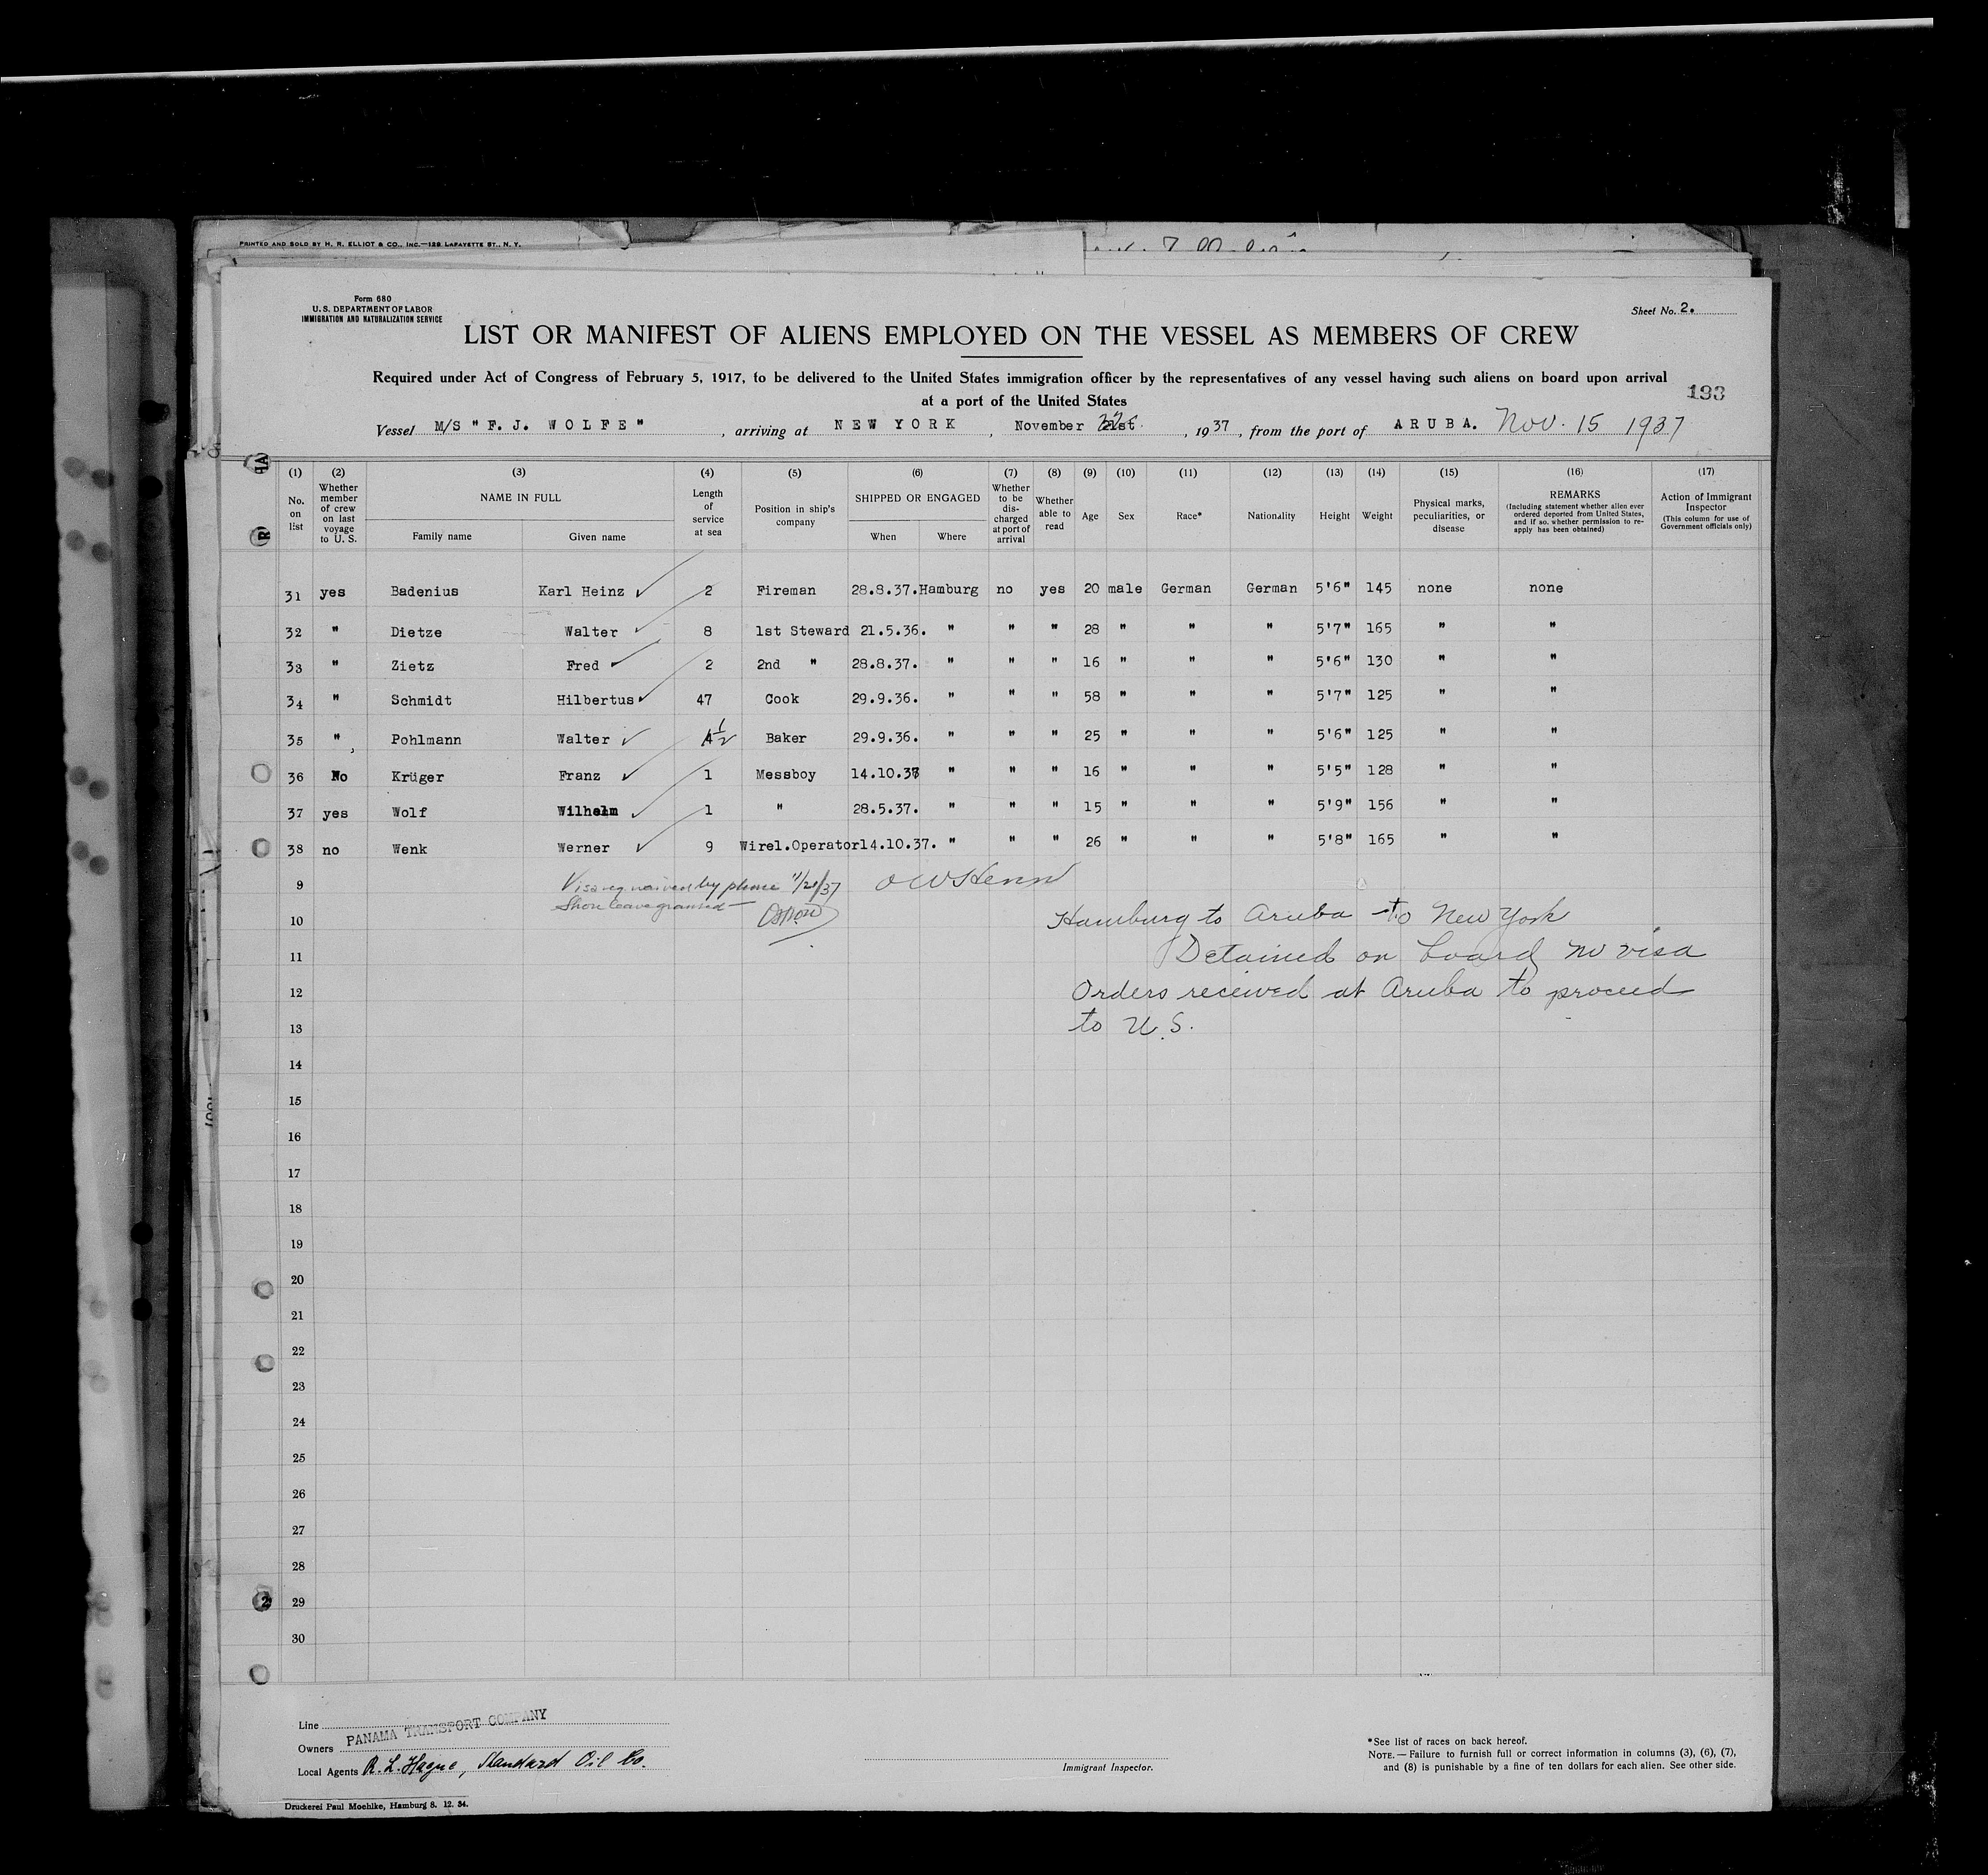 PRINTED AND SOLD BY H. R. ELLIOT & CO., INC.—128 LAFAYETTE ST., N. Y.
Form 680
U. S. DEPARTMENT OF LABOR
IMMIGRATION AND NATURALIZATION SERVICE
Sheet No. 2.
LIST OR MANIFEST OF ALIENS EMPLOYED ON THE VESSEL AS MEMBERS OF CREW
Required under Act of Congress of February 5, 1917, to be delivered to the United States immigration officer by the representatives of any vessel having such aliens on board upon arrival
at a port of the United States
193
Vessel M/S "F. J. WOLFE", arriving at NEW YORK, November, 1937, from the port of ARUBA. Nov. 15 1937
(1) No. on list
(2) Whether member of crew on last voyage to U. S.
(3) NAME IN FULL
Family name Given name
(4) Length of service at sea
(5) Position in ship's company
(6) SHIPPED OR ENGAGED
When Where
(7) Whether to be discharged at port of arrival
(8) Whether able to read
(9) Age
(10) Sex
(11) Race*
(12) Nationality
(13) Height
(14) Weight
(15) Physical marks, peculiarities, or disease
(16) REMARKS (Including statement whether alien ever ordered deported from United States, and if so, whether permission to re-apply has been obtained)
(17) Action of Immigrant Inspector (This column for use of Government officials only)
31 yes Badenius Karl Heinz 2 Fireman 28.8.37. Hamburg no yes 20 male German German 5'6" 145 none none
32 " Dietze Walter 8 1st Steward 21.5.36. " " " 28 " " " 5'7" 165 " "
33 " Zietz Fred 2 2nd " 28.8.37. " " " 16 " " " 5'6" 130 " "
34 " Schmidt Hilbertus 47 Cook 29.9.36. " " " 58 " " " 5'7" 125 " "
35 " Pohlmann Walter 4½ Baker 29.9.36. " " " 25 " " " 5'6" 125 " "
36 No Krüger Franz 1 Messboy 14.10.37 " " " 16 " " " 5'5" 128 " "
37 yes Wolf Wilhelm 1 " 28.5.37. " " " 15 " " " 5'9" 156 " "
38 no Wenk Werner 9 Wirel.Operator 14.10.37. " " " 26 " " " 5'8" 165 " "
9 Visa req waived by phone 11/21/37
Shore leave granted
10 Hamburg to Aruba to New York
11 Detained on board no visa
12 Orders received at Aruba to proceed
13 to U.S.
14
15
16
17
18
19
20
21
22
23
24
25
26
27
28
29
30
Line
Owners PANAMA TRANSPORT COMPANY
Local Agents R. L. Hague, Standard Oil Co.
Immigrant Inspector.
*See list of races on back hereof.
NOTE.—Failure to furnish full or correct information in columns (3), (6), (7),
and (8) is punishable by a fine of ten dollars for each alien. See other side.
Druckerei Paul Moehlke, Hamburg 8. 12. 34.